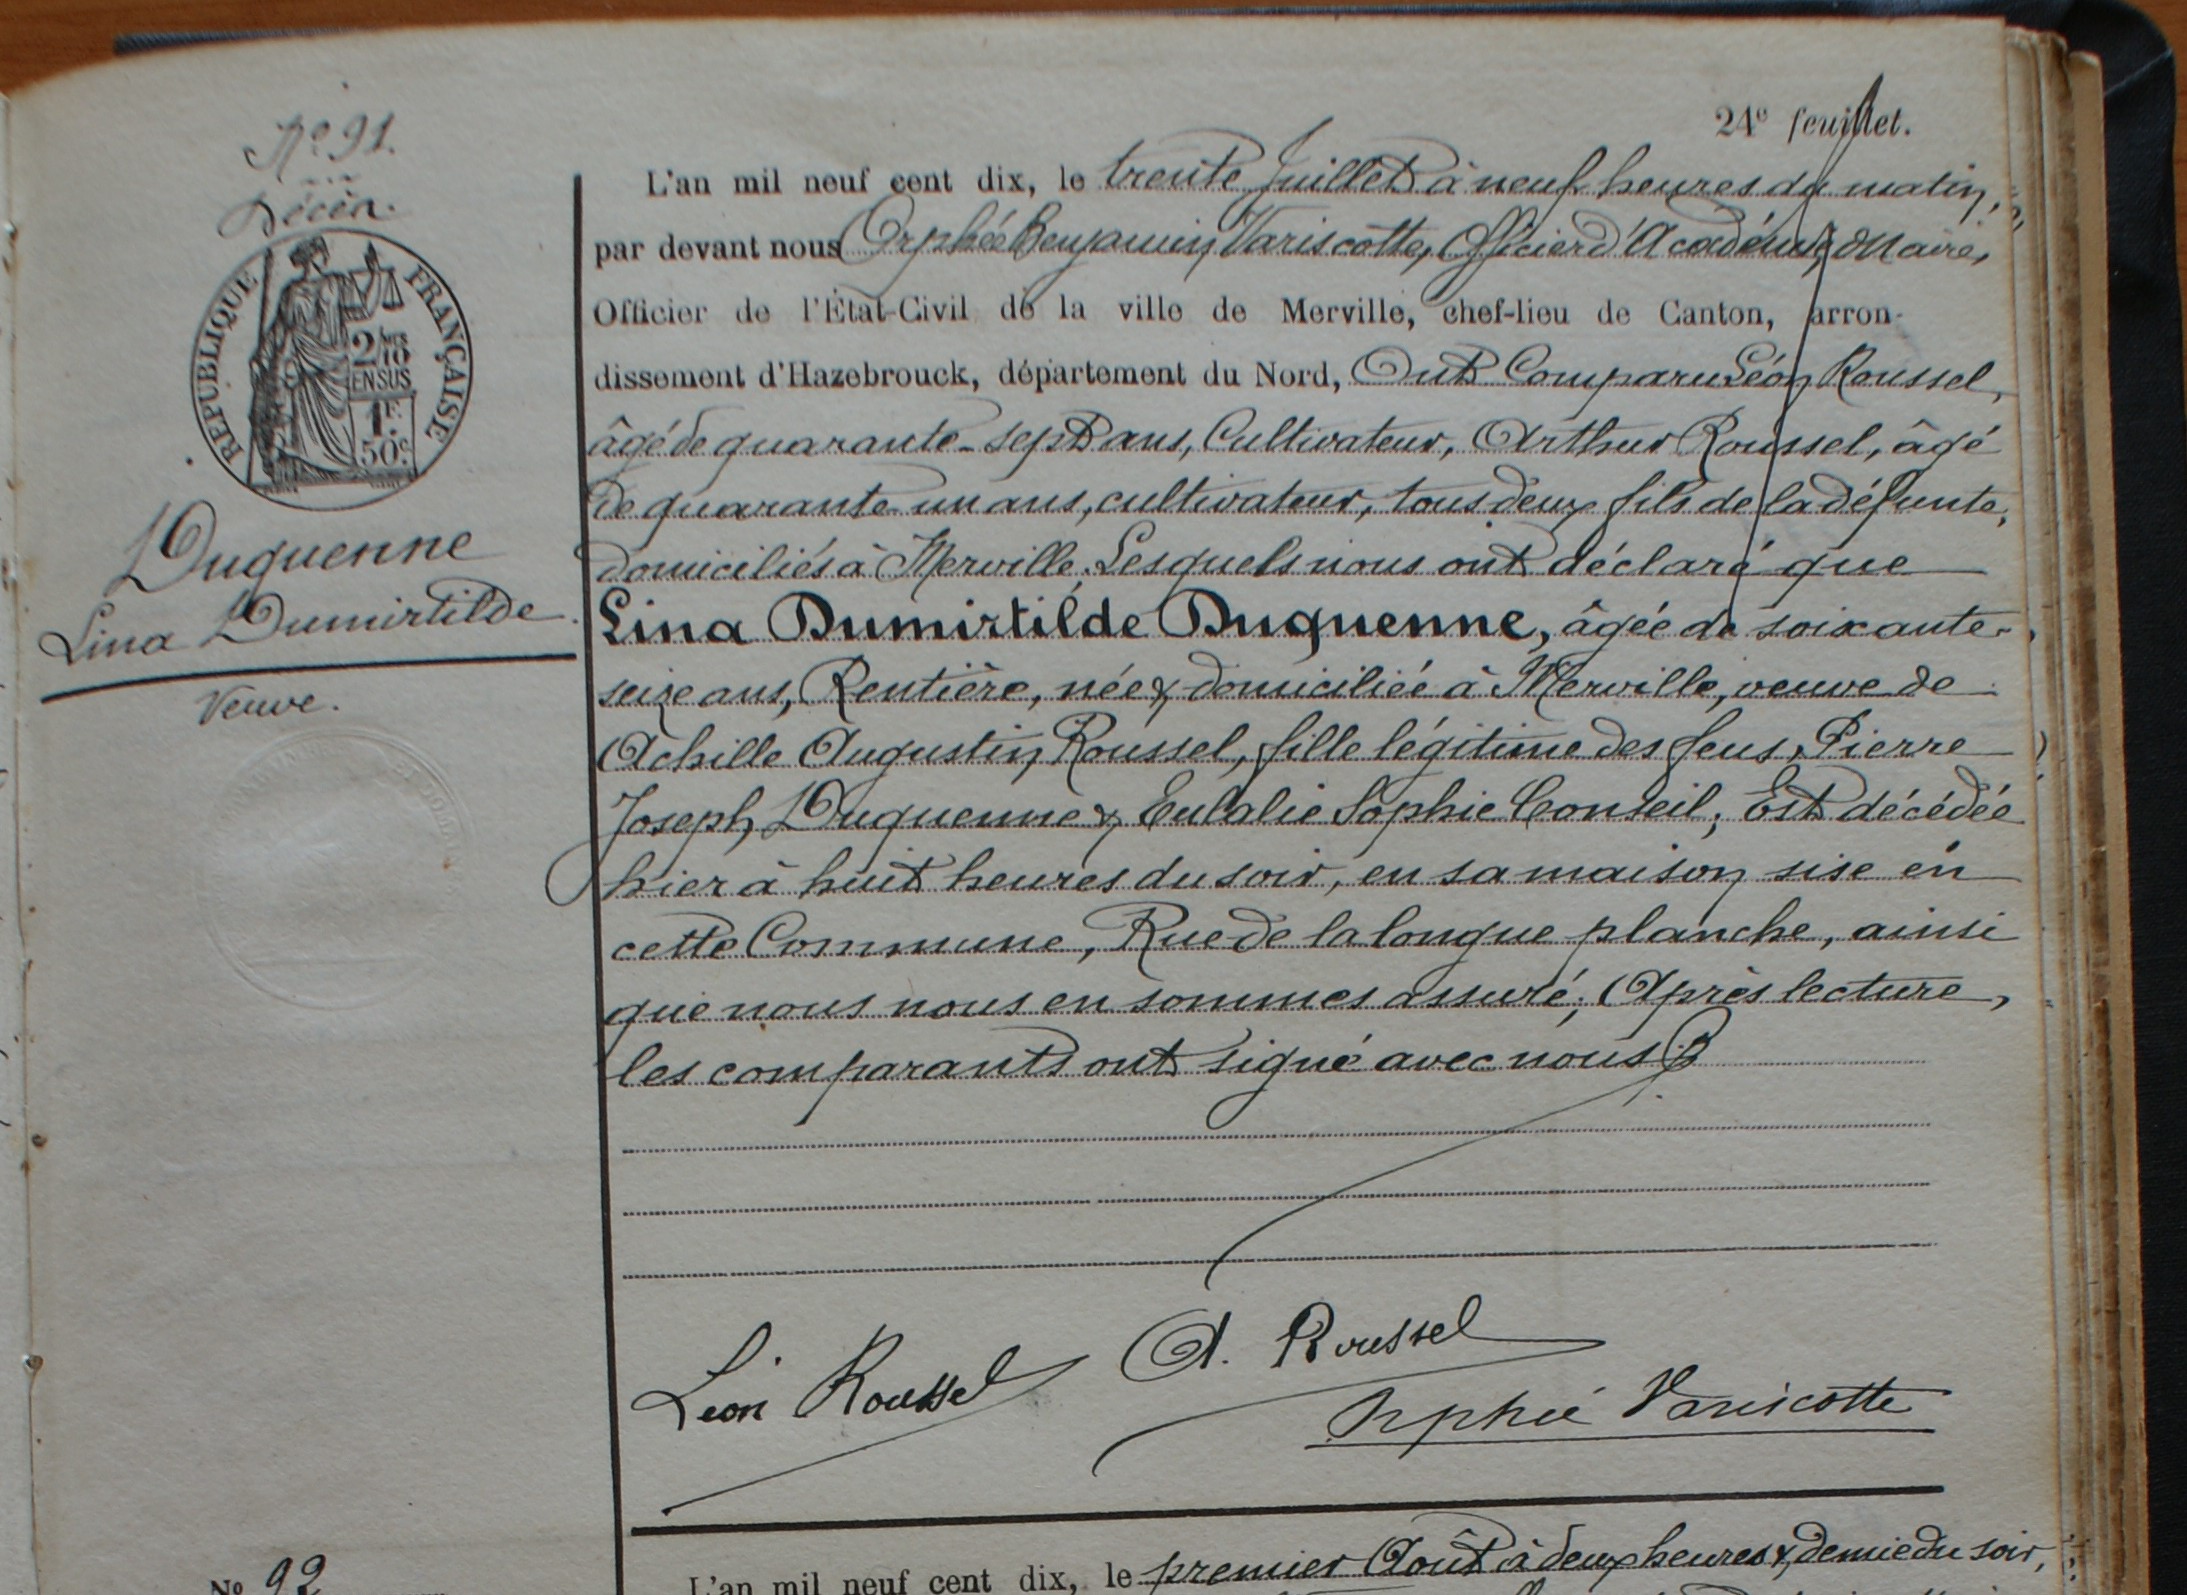 24e feuillet.
No 91.
Décès.
RÉPUBLIQUE FRANÇAISE
2/10 MES
EN SUS
1F.
50c.
Duquenne
Lina Dumirtilde.
Veuve.
L'an mil neuf cent dix, le trente Juillet à neuf heures du matin,
par devant nous Orphée Benjamin Variscotte, Officier d'Académie, Maire,
Officier de l'État-Civil de la ville de Merville, chef-lieu de Canton, arron-
dissement d'Hazebrouck, département du Nord, Ont Comparu Léon Roussel,
âgé de quarante-sept ans, Cultivateur, Arthur Roussel, âgé
de quarante-un ans, cultivateur, tous deux fils de la défunte,
domiciliés à Merville. Lesquels nous ont déclaré que
Lina Dumirtilde Duquenne, âgée de soixante-
seize ans, Rentière, née & domiciliée à Merville, veuve de
Achille Augustin Roussel, fille légitime des feus, Pierre
Joseph Duquenne & Eulalie Sophie Conseil; Est décédée
hier à huit heures du soir, en sa maison sise en
cette Commune, Rue de la longue planche, ainsi
que nous nous en sommes assuré; Après lecture,
les comparants ont signé avec nous
Léon Roussel
A. Roussel
Orphée Variscotte
No 92
L'an mil neuf cent dix, le premier Août à deux heures & demie du soir,